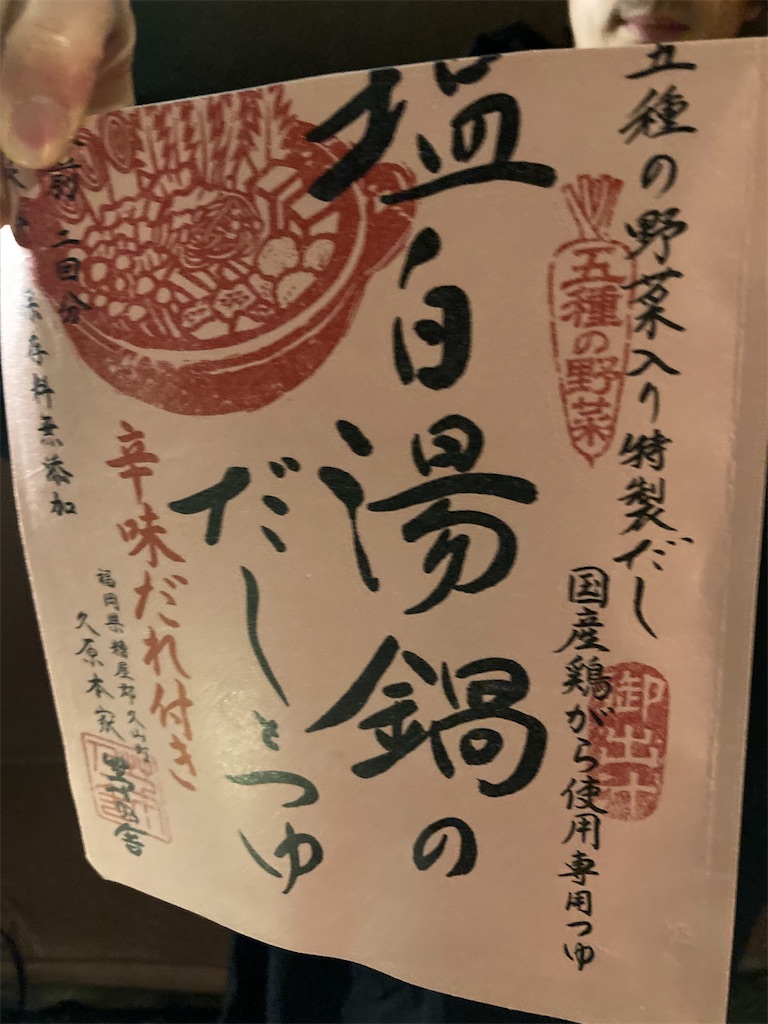 五種の野菜入り特製だし
五種の野菜
国産鶏がら使用専用つゆ
御出汁
塩白湯鍋の
だしとつゆ
辛味だれ付き
福岡県糟屋郡久山町
久原本家
前 二回分
保存料無添加